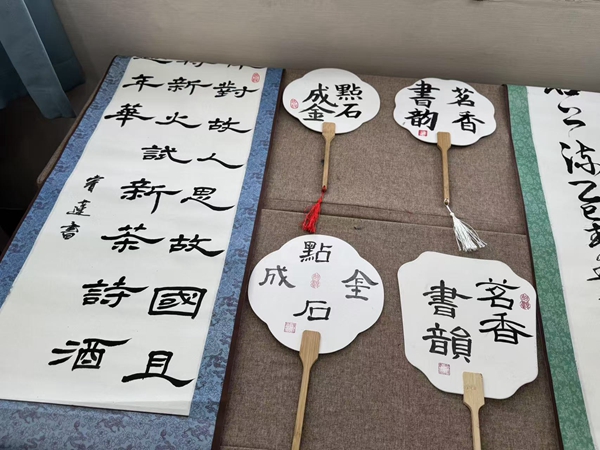 對故人思故國且
新火試新茶詩酒
年華
點石
成金
茗香
書韻
點石成金
茗香
書韻
乙巳